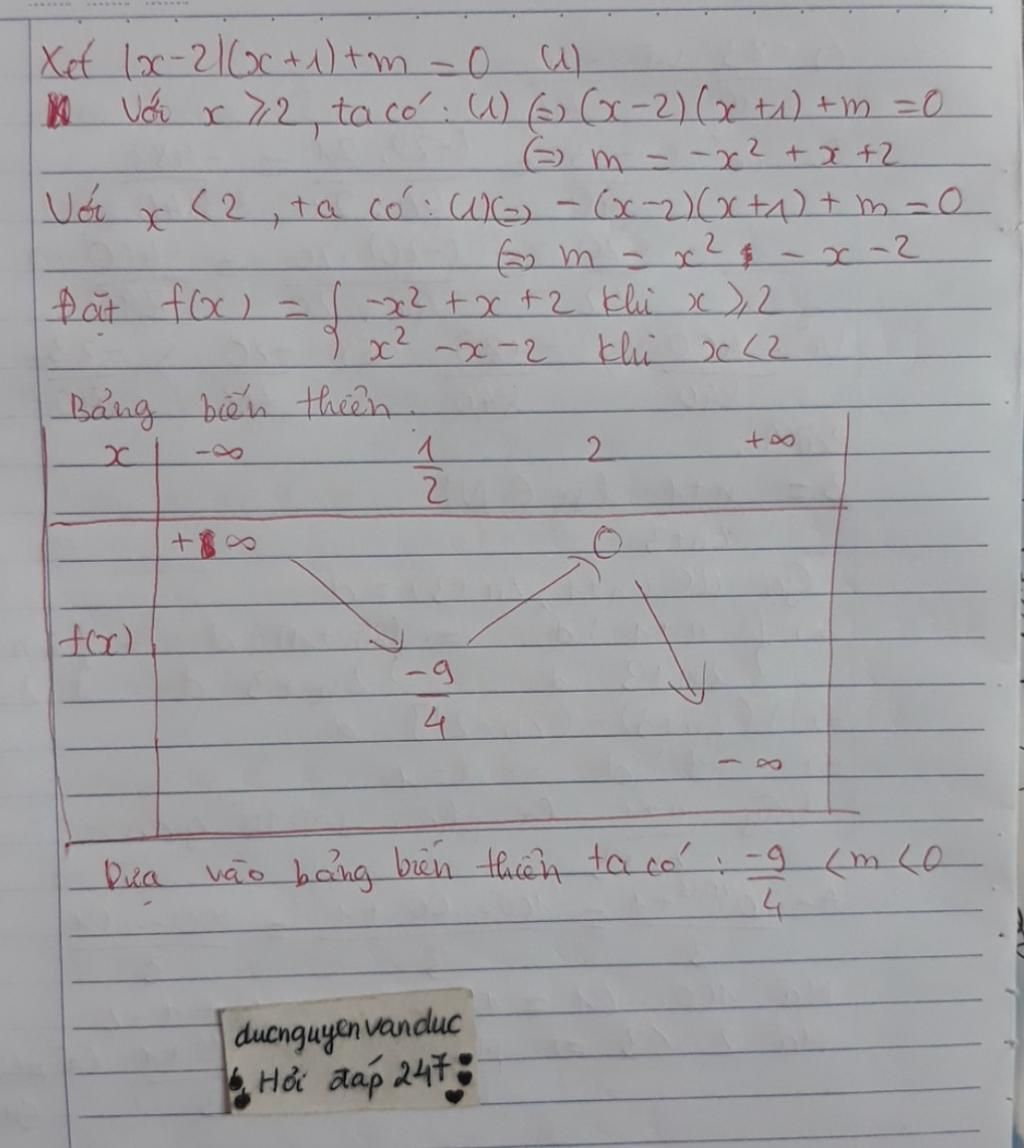 Xét |x-2|(x+1)+m=0 (1)
Với x ≥ 2, ta có: (1) (=) (x-2)(x+1)+m=0
(=) m = -x² + x + 2
Với x < 2, ta có: (1) (=) -(x-2)(x+1)+m=0
(=) m = x² - x - 2
Đặt f(x) = { -x² + x + 2 khi x ≥ 2
x² - x - 2 khi x < 2
Bảng biến thiên.
x -∞ 1/2 2 +∞
+∞ 0
f(x)
-9/4
-∞
Dựa vào bảng biến thiên ta có: -9/4 < m < 0
ducnguyenvanduc
Hỏi đáp 247